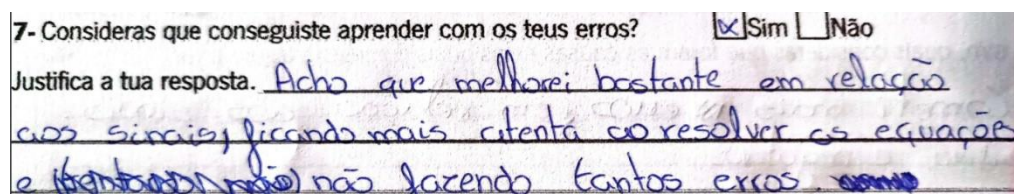 7- Consideras que conseguiste aprender com os teus erros? Sim Não
Justifica a tua resposta. Acho que melhorei bastante em relação
aos sinais, ficando mais atenta ao resolver as equações
e não fazendo tantos erros